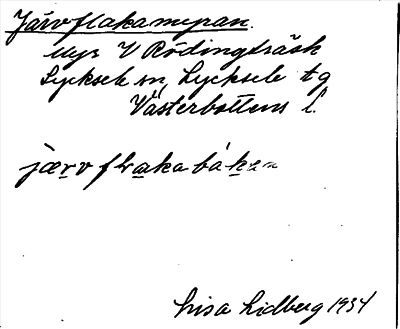 Järvflakamyran.
Myr V Rödingträsk
Lycksele sn, Lycksele tg
Västerbottens l.
Lisa Lidberg 1934